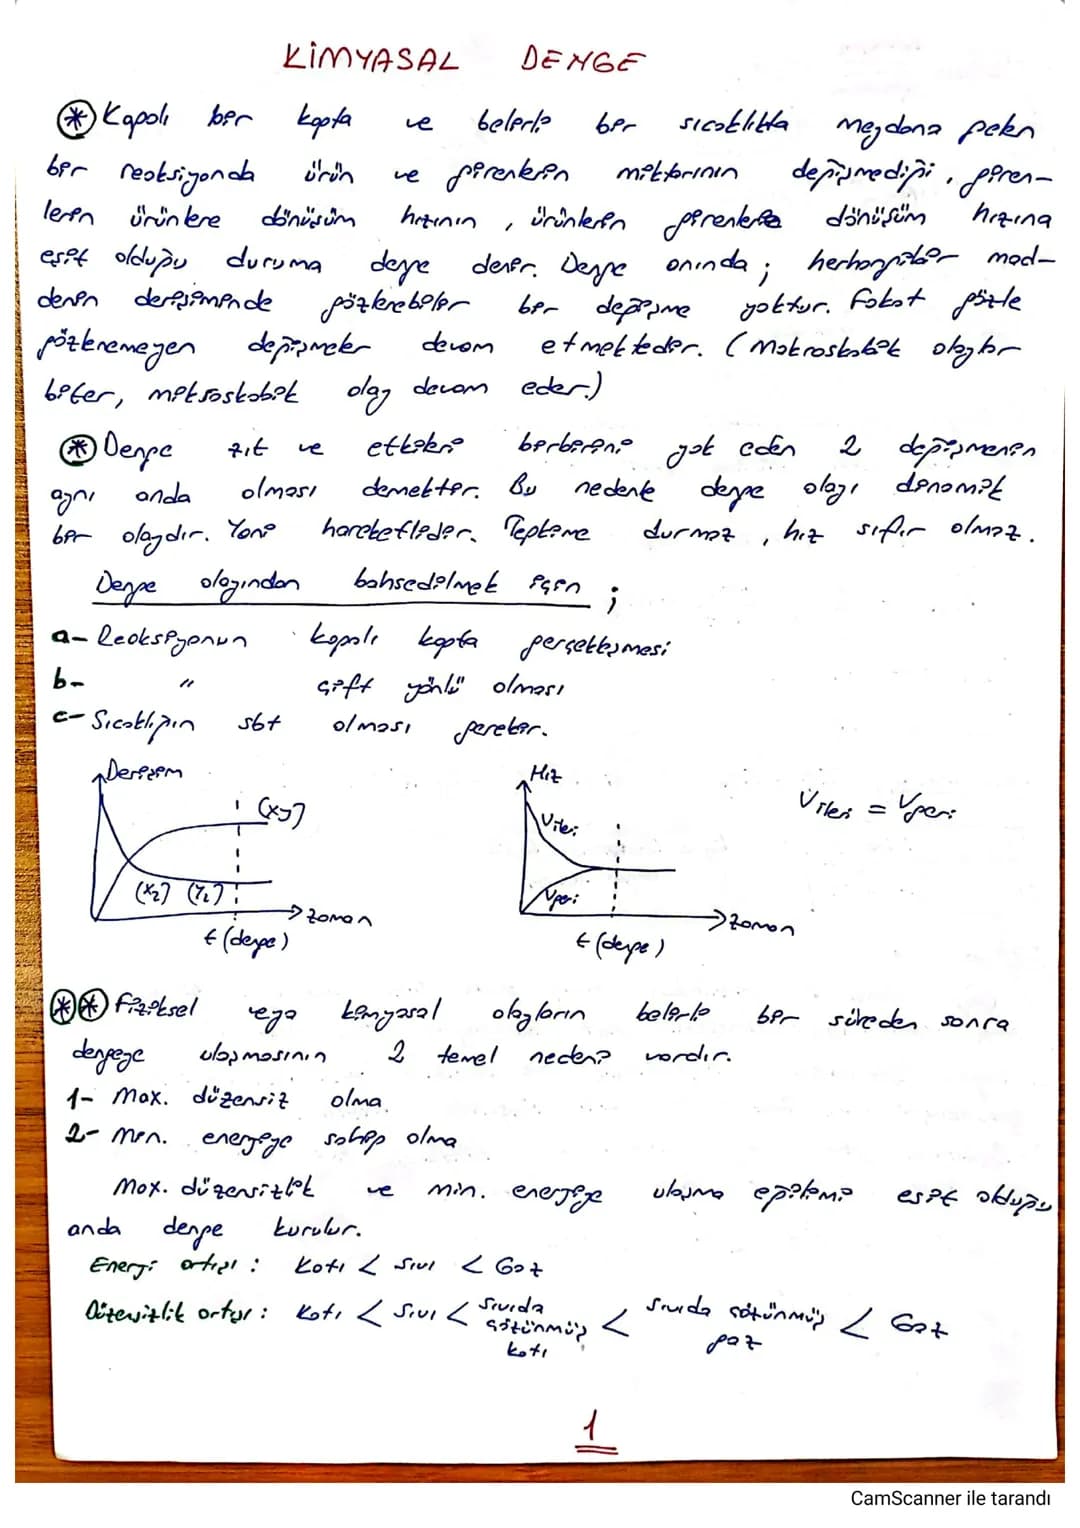 KİMYASAL DENGE
* Kapalı bir kapta ve belirli bir sıcaklıkta meydana gelen
bir reaksiyonda ürün ve girenlerin miktarının değişmediği, giren-
lerin ürünlere dönüşüm hızının, ürünlerin girenlere dönüşüm hızına
eşit olduğu duruma denge denir. Denge anında; herhangibir mad-
denin derişiminde gözlenebilir bir değişme yoktur. Fakat gözle
gözlenemeyen değişmeler devam etmektedir. (Makroskobik olaylar
biter, mikroskobik olay devam eder.)
* Denge zıt ve etkileri birbirini yok eden 2 değişmenin
aynı anda olması demektir. Bu nedenle denge olayı dinamik
bir olaydır. Yani hareketlidir. Tepkime durmaz, hız sıfır olmaz.
Denge olayından bahsedilmek için ;
a- Reaksiyonun kapalı kapta gerçekleşmesi
b- " çift yönlü olması
c- Sıcaklığın sbt olması gerekir.
Derişim
Hız
(xy)
Vileri
Vileri = Vgeri
(x2) (Y2)
Vgeri
zaman
zaman
t (denge)
t (denge)
** Fiziksel veya kimyasal olayların belirli bir süreden sonra
dengeye ulaşmasının 2 temel nedeni vardır.
1- Max. düzensiz olma
2- min. enerjiye sahip olma
Max. düzensizlik ve min. enerjiye ulaşma eğilimi eşit olduğu
anda denge kurulur.
Enerji artışı : Katı < Sıvı < Gaz
Düzensizlik artışı : Katı < Sıvı < Sıvıda çözünmüş katı < Sıvıda çözünmüş gaz < Gaz
1
CamScanner ile tarandı